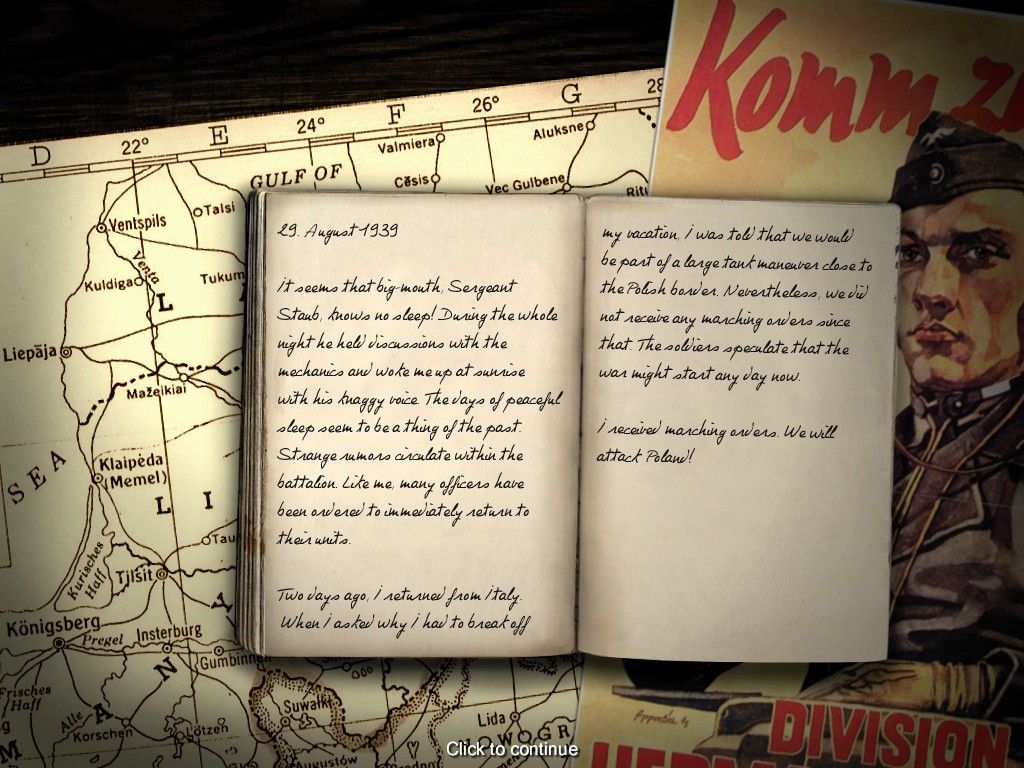 Komm zu
D
22°
E
24°
F
26°
G
28
GULF OF
Valmiera
Aluksne
Cēsis
Vec Gulbene
Ventspils
Talsi
Venta
Kuldiga
Tukum
L
Liepāja
Mažeikiai
SEA
Klaipėda
(Memel)
L I
Kurisches
Haff
Tau
Tilsit
Königsberg
Pregel
Insterburg
Gumbinnen
Frisches
Haff
N
A
M
Alle
Korschen
Lötzen
Suwałki
Augustów
Lida
NOWOGR
29. August 1939
it seems that big-mouth, Sergeant
Staub, knows no sleep! During the whole
night he held discussions with the
mechanics and woke me up at sunrise
with his knaggy voice. The days of peaceful
sleep seem to be a thing of the past.
Strange rumors circulate within the
battalion. Like me, many officers have
been ordered to immediately return to
their units.
Two days ago, i returned from Italy.
When i asked why i had to break off
my vacation, i was told that we would
be part of a large tank maneuver close to
the Polish border. Nevertheless, we did
not receive any marching orders since
that. The soldiers speculate that the
war might start any day now.
i received marching orders. We will
attack Poland!
DIVISION
Click to continue